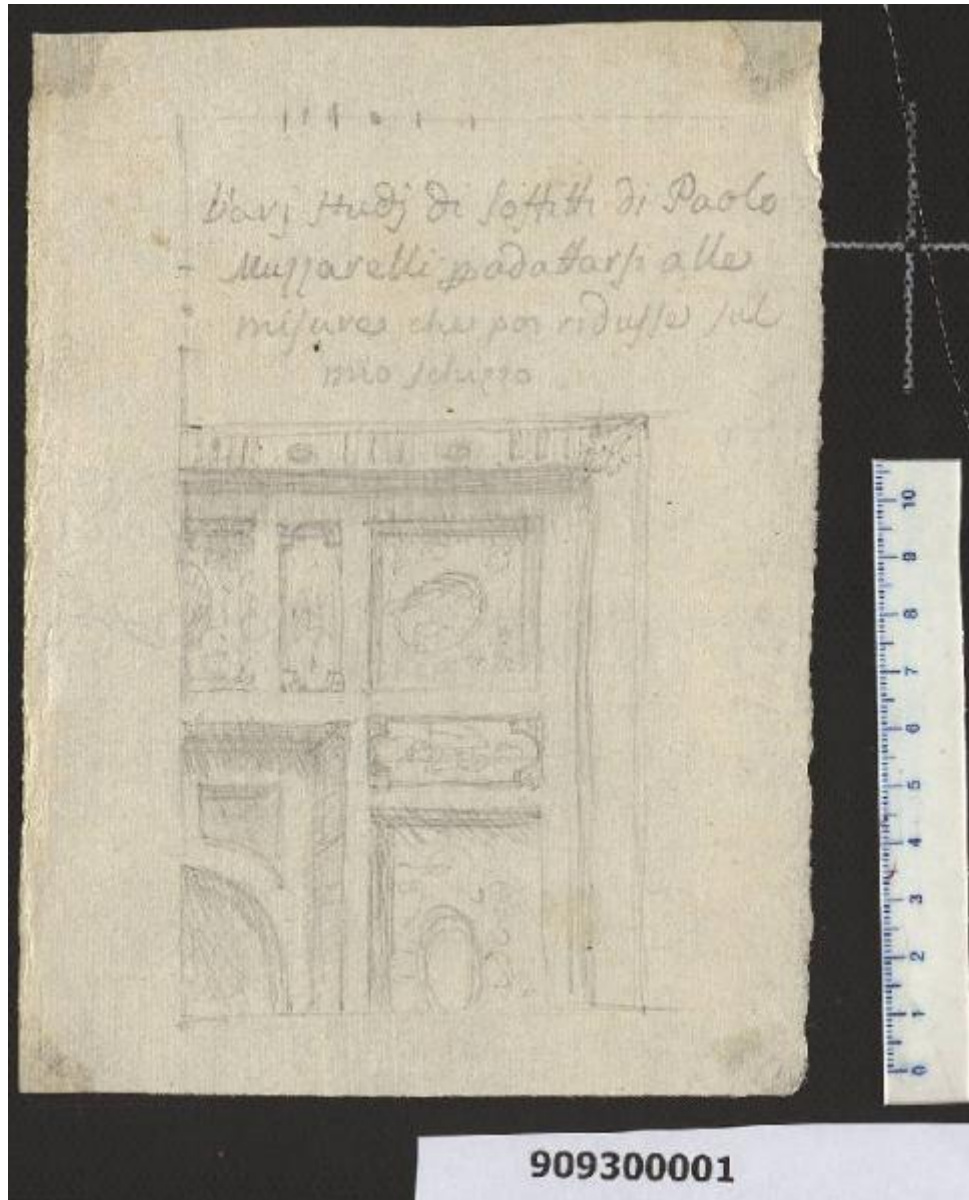 Varj studj di soffitti di Paolo
Muzzarelli p adattarsi alle
misure che poi ridusse sul
mio schizzo
10
9
8
7
6
5
4
3
2
1
0
909300001